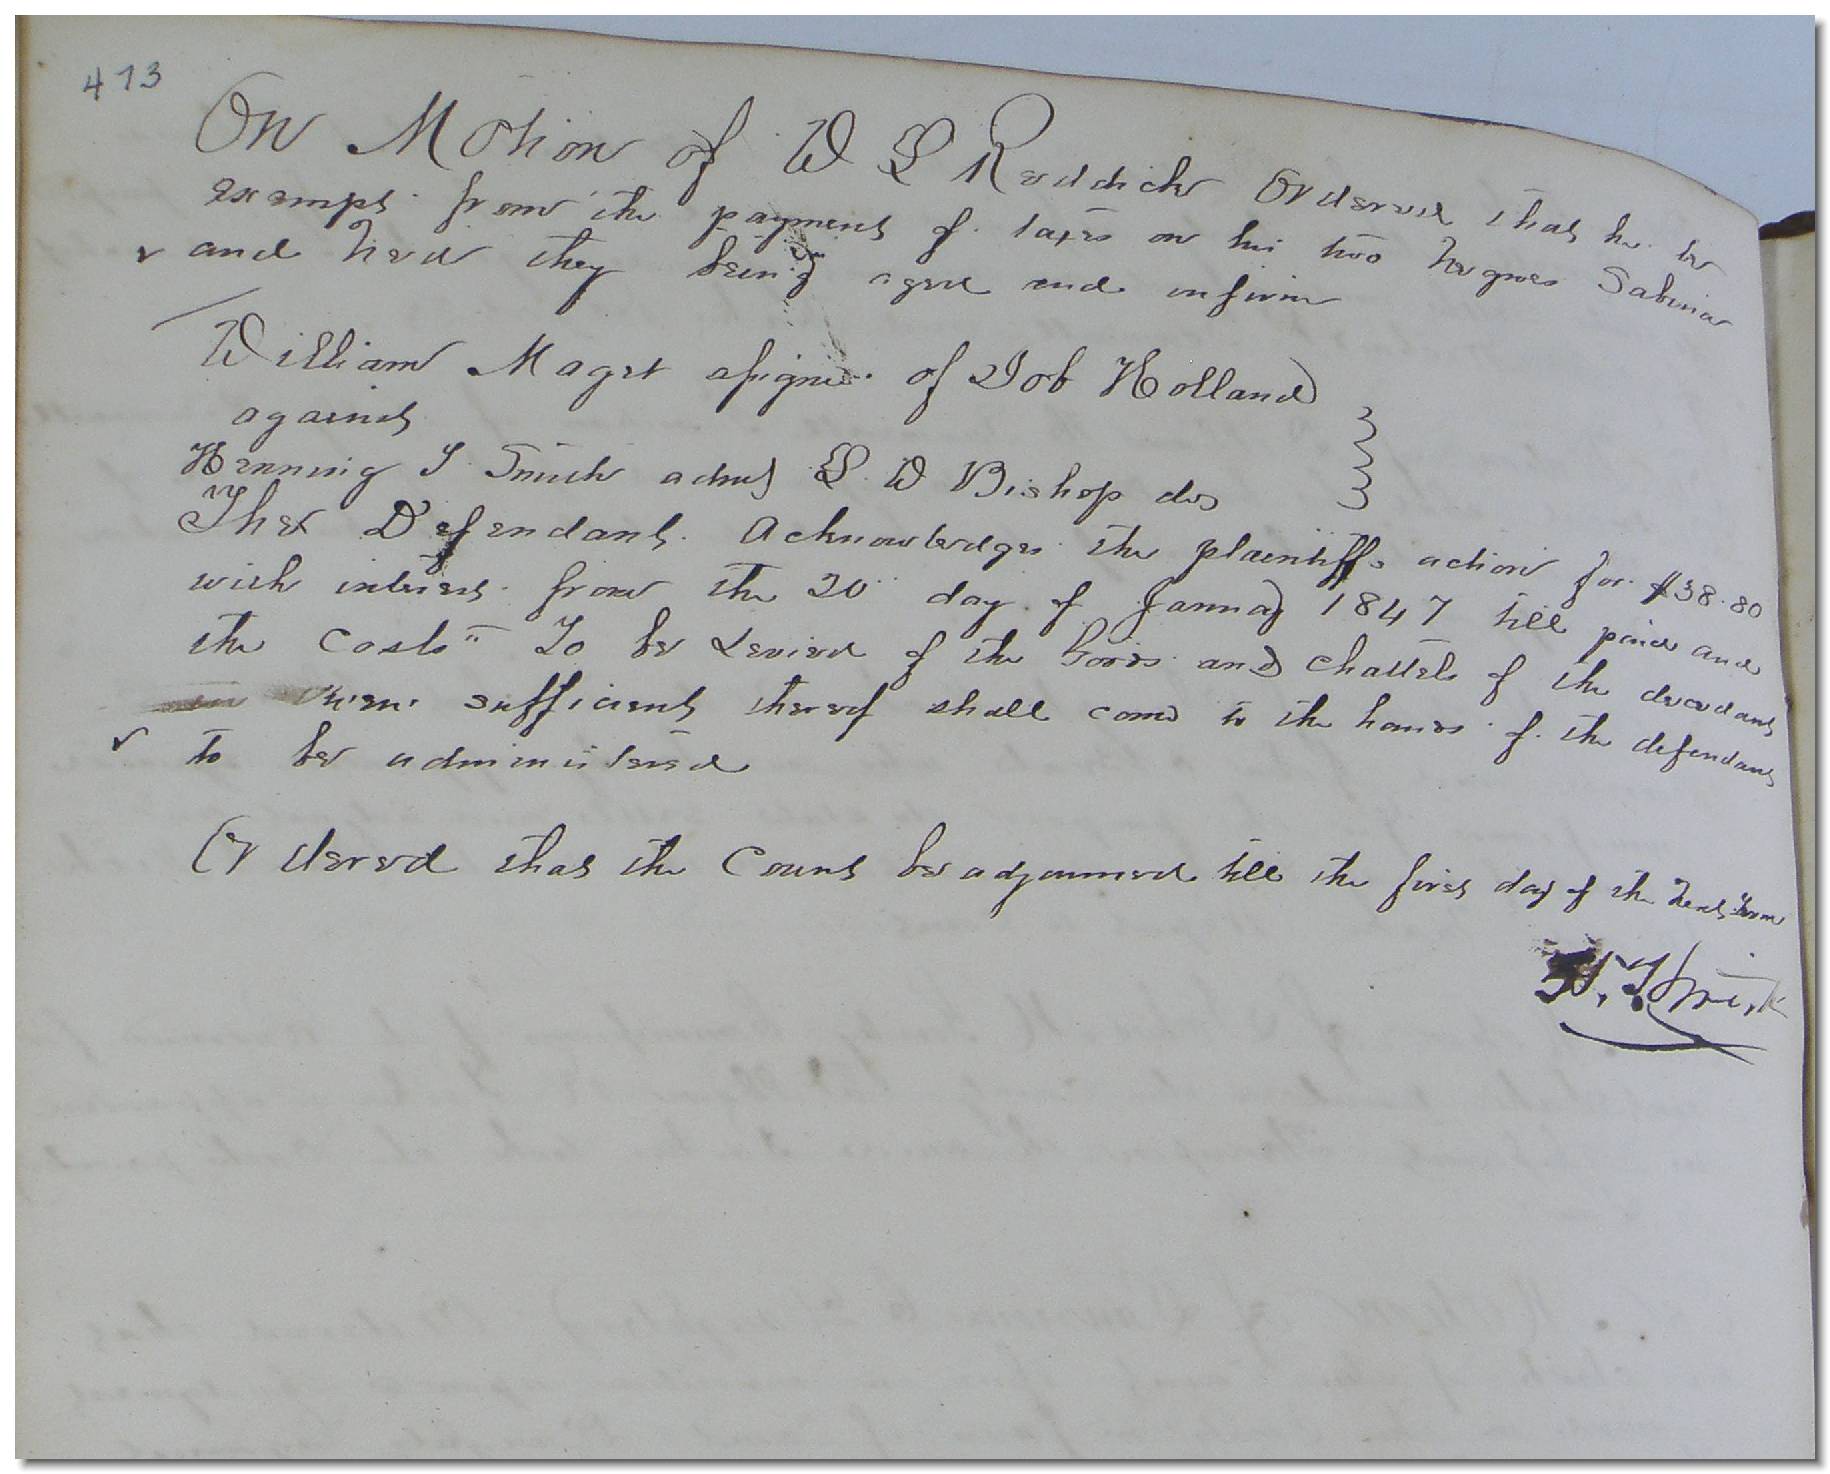 473
On Motion of W L Reddick Ordered that he be
exempt from the payment of taxes on his two Negroes Sabina
and Ned they being aged and infirm
William Maget assignee of Job Holland
against
Henning T Smith admr L. D Bishop decd
The Defendant Acknowledges the plaintiffs action for $38.80
with interest from the 20 day of January 1847 till paid and
the Costs To be Levied of the Goods and Chattels of the decedant
when sufficient thereof shall come to the hands of the defendant
to be administered
Ordered that the Court be adjourned till the first day of the Next Term